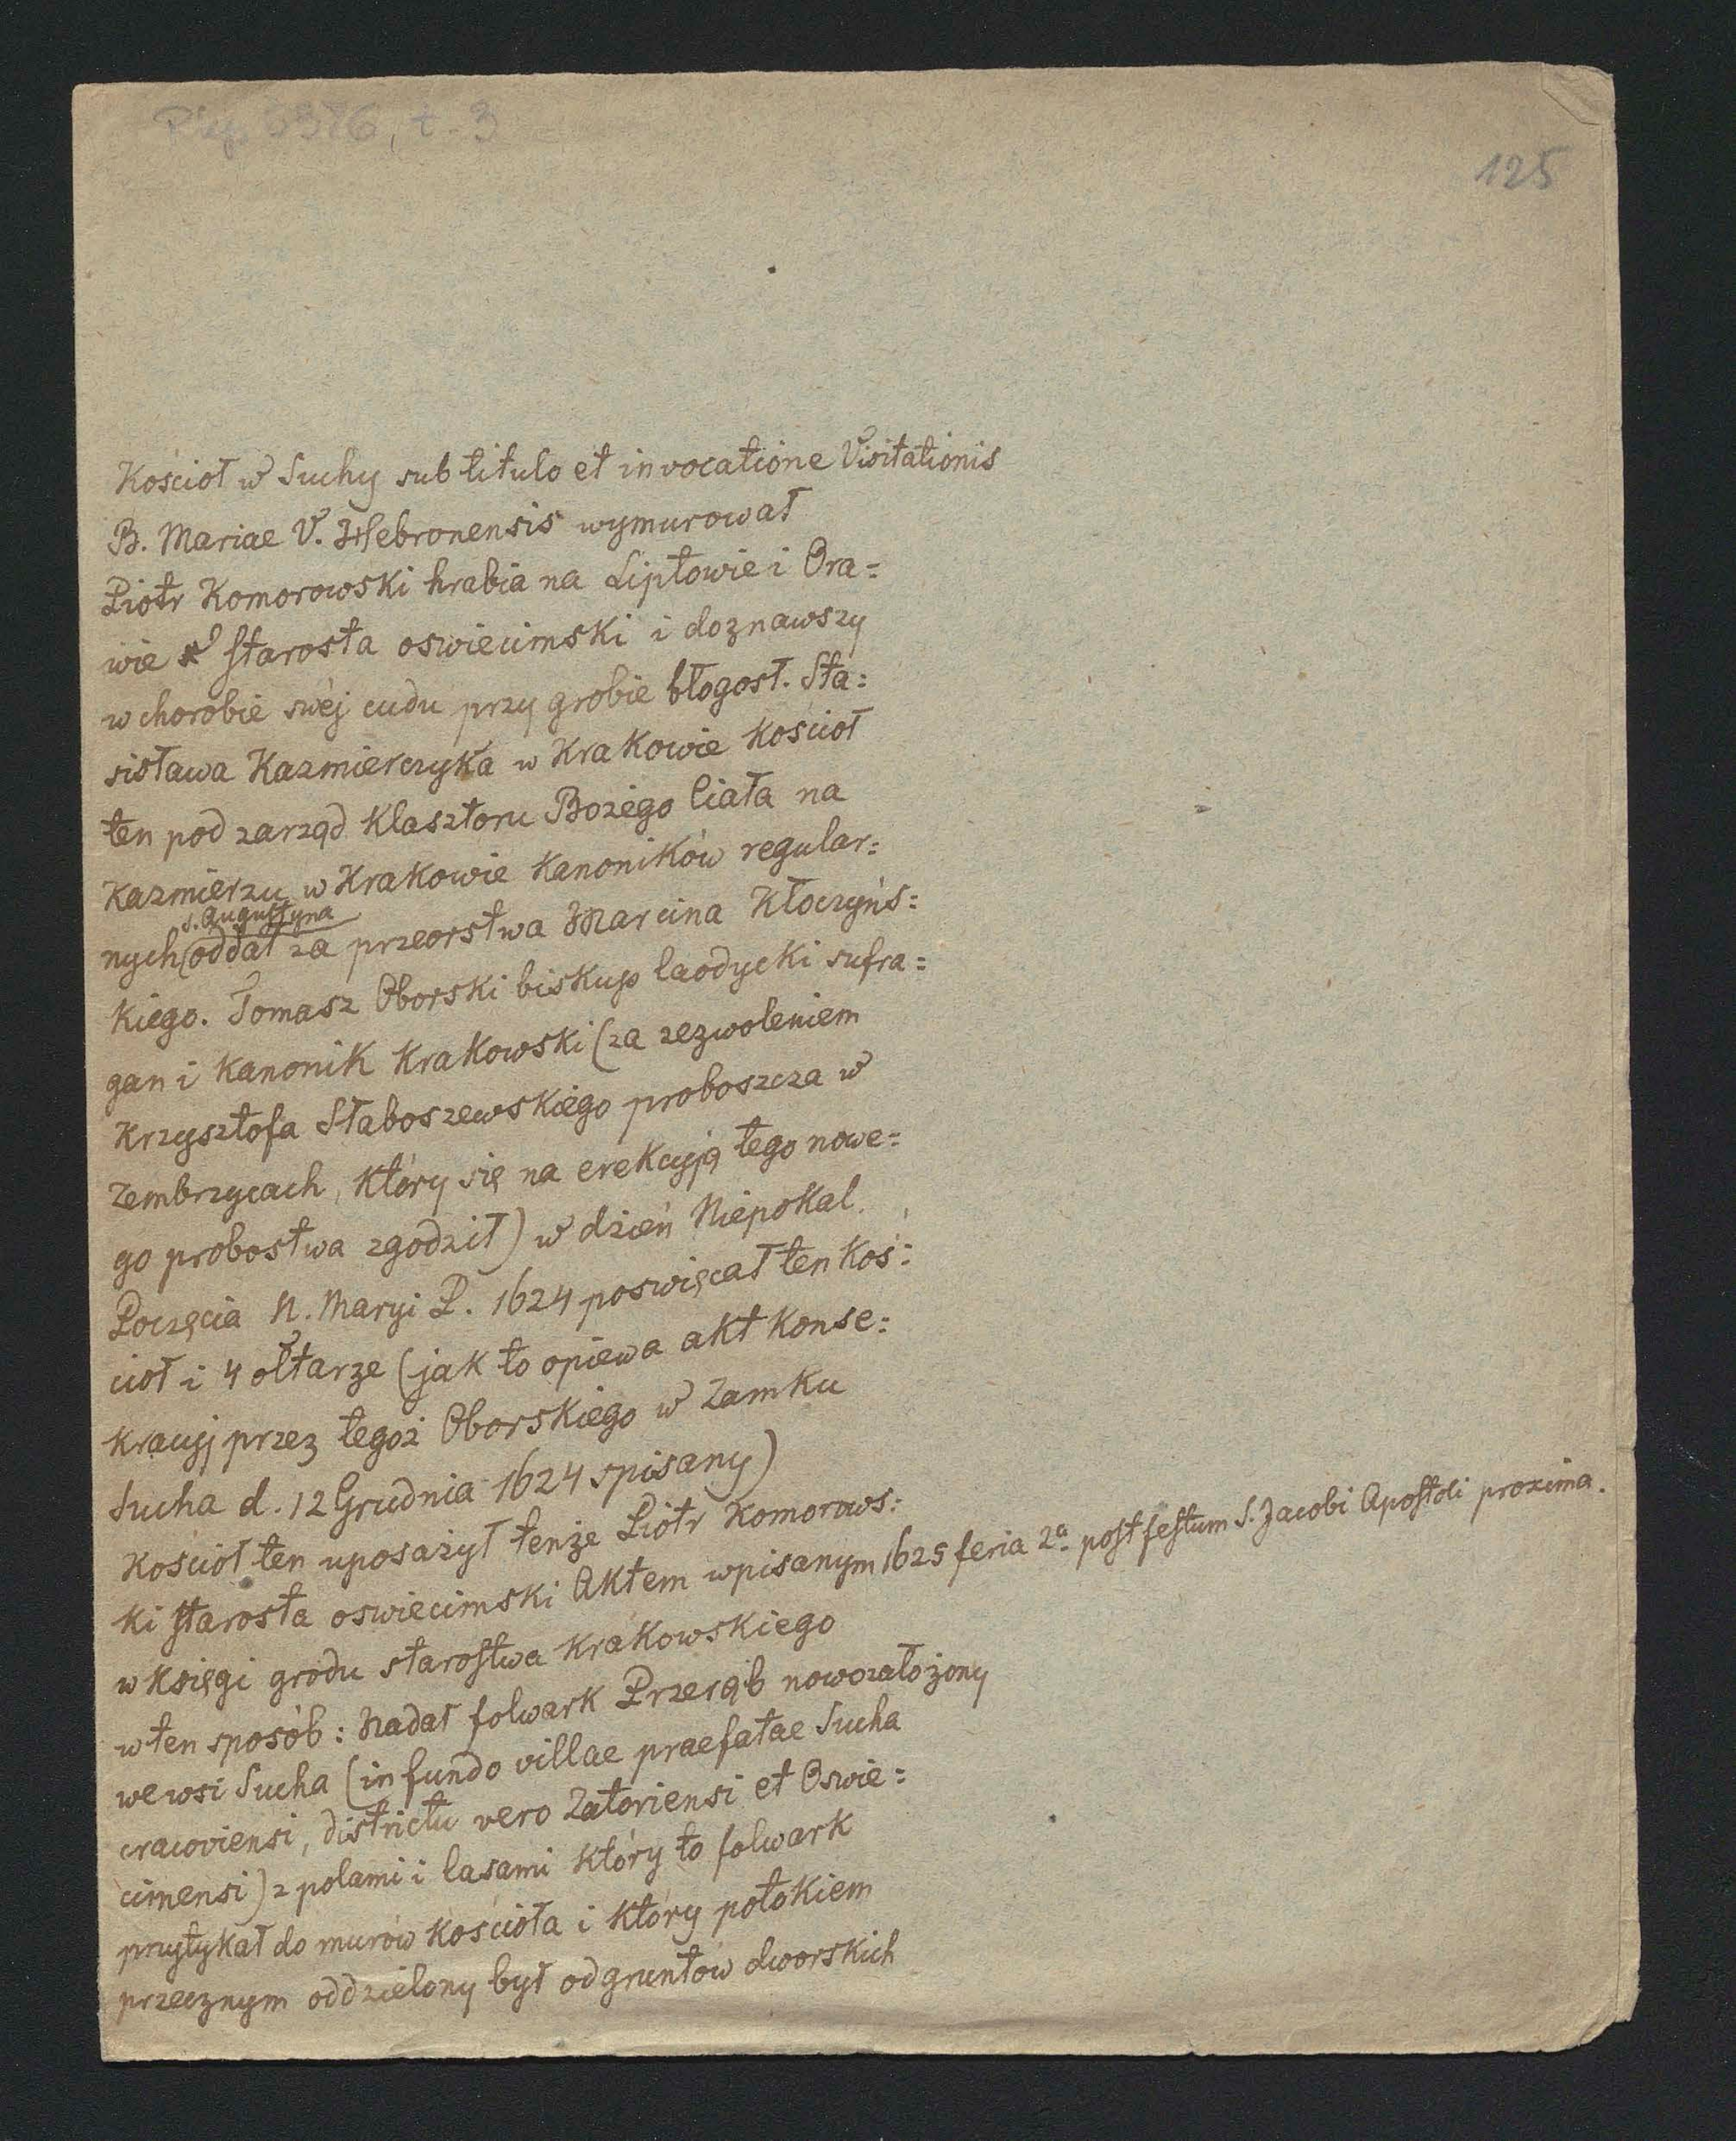 Rkp. 6376, t. 3
125
Kościoł w Suchy sub titulo et invocatione Visitationis
B. Mariae V. Hebronensis wymurował
Piotr Komorowski hrabia na Liptowie i Ora=
wie starosta oswiecimski i doznawszy
w chorobie swéj cudu przy grobie błogosł. Sta=
nisława Kazmierczyka w Krakowie kościoł
ten pod zarząd Klasztoru Bożego Ciała na
Kazmierzu w Krakowie Kanoników regular=
s. Augustyna
nych oddał za przeorstwa Marcina Kłoczyńs=
kiego. Tomasz Oborski biskup laodycki sufra=
gan i kanonik krakowski (za zezwoleniem
Krzysztofa Słaboszewskiego proboszcza w
Zembrzycach, który się na erekcyją tego nowe=
go probostwa zgodził) w dzień Niepokal.
Poczęcia N. Maryi P. 1624 poswięcał ten koś=
cioł i 4 ołtarze (jak to opiewa akt konse=
kracyj przez tegoż Oborskiego w Zamku
Sucha d. 12 Grudnia 1624 spisany)
Kościoł ten uposażył tenże Piotr Komorows=
ki starosta oswiecimski Aktem wpisanym 1625 feria 2ª post festum S. Jacobi Apostoli proxima.
w księgi grodu starostwa krakowskiego
w ten sposób: Nadał folwark Przerąb nowozałożony
we wsi Sucha (in fundo villae praefatae Sucha
cracoviensi, districtu vero Zatoriensi et Oswie=
cimensi) z polami i lasami który to folwark
przytykał do murów kościoła i który potokiem
przecznym oddzielony był od gruntów dworskich